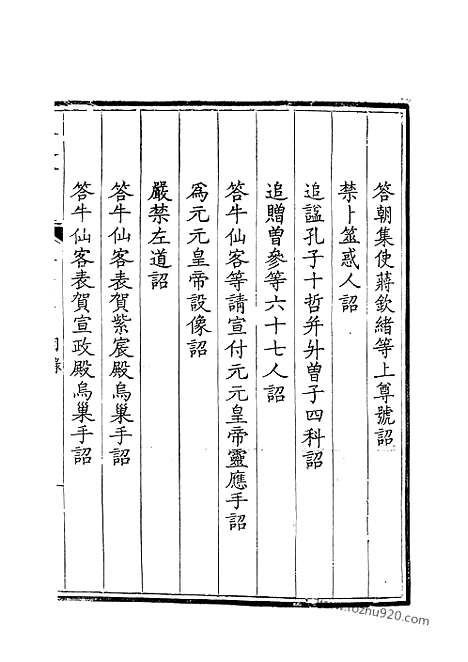 答朝集使蔣欽緒等上尊號詔
禁卜筮惑人詔
追諡孔子十哲幷升曾子四科詔
追贈曾參等六十七人詔
答牛仙客等請宣付元元皇帝靈應手詔
爲元元皇帝設像詔
嚴禁左道詔
答牛仙客表賀紫宸殿烏巢手詔
答牛仙客表賀宣政殿烏巢手詔